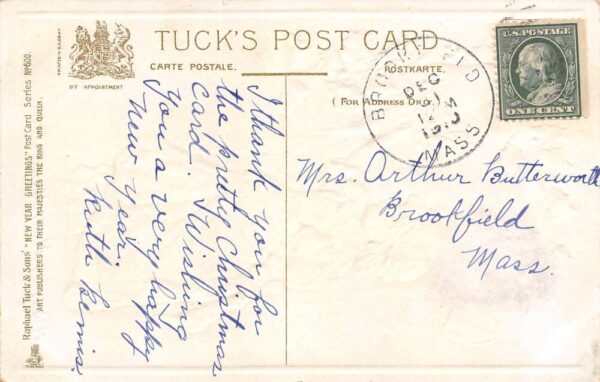 TUCK'S POST CARD
CARTE POSTALE.
POSTKARTE.
(FOR ADDRESS ONLY.)
BY APPOINTMENT
Raphael Tuck & Sons' "NEW YEAR GREETINGS" Post Card Series No 600.
ART PUBLISHERS TO THEIR MAJESTIES THE KING AND QUEEN.
BROOKFIELD
DEC
MASS
U.S. POSTAGE
ONE CENT
I thank you for
the pretty Christmas
card. Wishing
you a very happy
New Year.
Ruth Bemis.
Mrs. Arthur Butterworth
Brookfield
Mass.